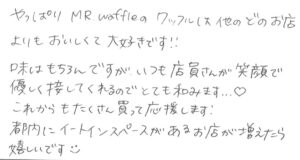 やっぱり MR.waffleの ワッフルは他のどのお店
よりもおいしくて大好きです!!
味はもちろんですがいつも店員さんが笑顔で
優しく接してくれるのでとても和みます…♡
これからもたくさん買って応援します!
都内にイートインスペースがあるお店が増えたら
嬉しいです☺